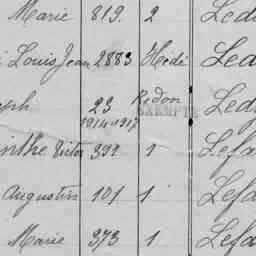 Marie 819. 2 Led
Louis Jean 2883 Hedé Led
eph 23 Redon Led
1914-1917 EXEMPTÉ
inthe Victor 399 1 Lefa
Augustin 101 1 Lefa
Marie 373 1 Lefa